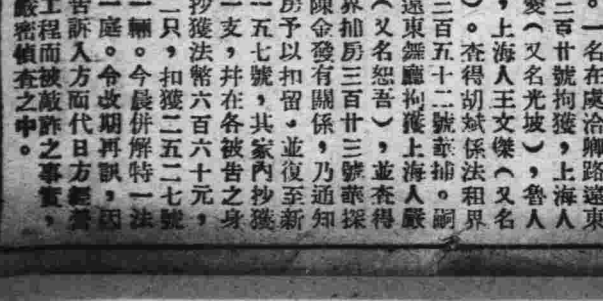 。一名在虞洽卿路遠東
三百廿號拘獲,上海人
愛(又名光坡),魯人
,上海人王文傑(又名
)。查得胡斌係法租界
三百五十二號華捕。嗣
遠東舞廳拘獲上海人嚴
(又名恕吾),並查得
界捕房三百廿三號華探
陳金發有關係,乃通知
房予以扣留,並復至新
一五七號,其家內抄獲
一支,幷在各被告之身
抄獲法幣六百六十元,
二只,扣獲二五二七號
一輛。今晨併解特一法
一庭。令改期再訊,因
告訴人方面代日方經營
工程而被敲詐之事實,
嚴密偵查之中。